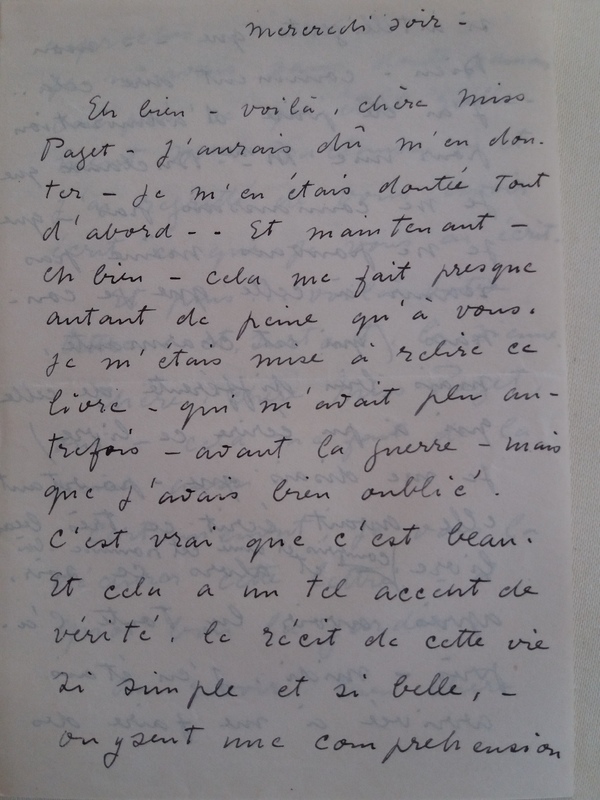 mercredi soir -
Eh bien - voilà, chère Miss
Paget - J'aurais dû m'en dou-
ter - Je m'en étais doutée tout
d'abord - - Et maintenant -
eh bien - cela me fait presque
autant de peine qu'à vous.
Je m'étais mise à relire ce
livre - qui m'avait plu au-
trefois - avant la guerre - mais
que j'avais bien oublié.
C'est vrai que c'est beau.
Et cela a un tel accent de
vérité, le récit de cette vie
si simple et si belle, -
on y sent une compréhension